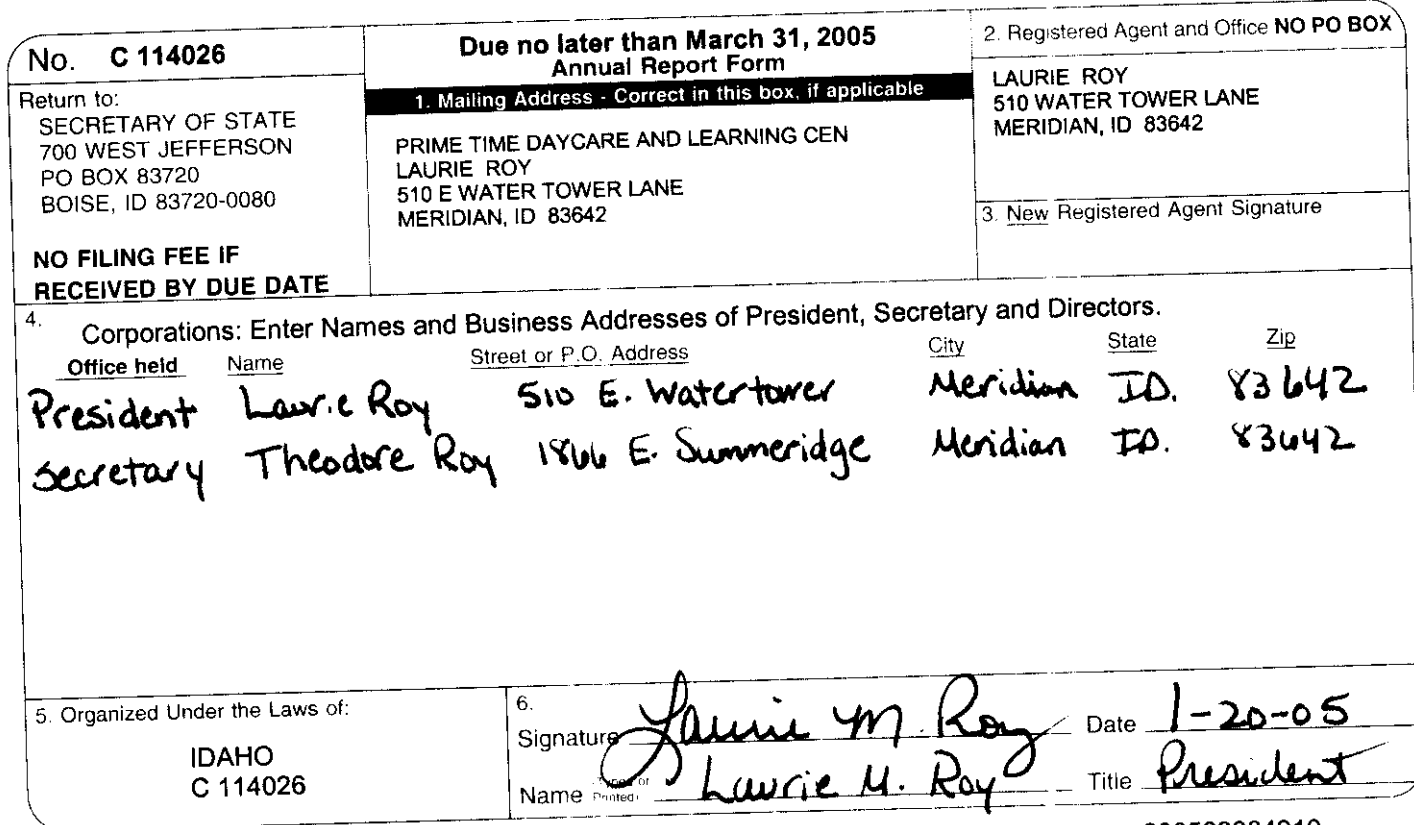 No. C 114026
Return to:
SECRETARY OF STATE
700 WEST JEFFERSON
PO BOX 83720
BOISE, ID 83720-0080
NO FILING FEE IF
RECEIVED BY DUE DATE
Due no later than March 31, 2005
Annual Report Form
1. Mailing Address - Correct in this box, if applicable
PRIME TIME DAYCARE AND LEARNING CEN
LAURIE ROY
510 E WATER TOWER LANE
MERIDIAN, ID 83642
2. Registered Agent and Office NO PO BOX
LAURIE ROY
510 WATER TOWER LANE
MERIDIAN, ID 83642
3. New Registered Agent Signature
4. Corporations: Enter Names and Business Addresses of President, Secretary and Directors.
Office held Name Street or P.O. Address City State Zip
President Laurie Roy 510 E. Watertower Meridian ID. 83642
Secretary Theodore Roy 1866 E. Summeridge Meridian ID. 83642
5. Organized Under the Laws of:
IDAHO
C 114026
6.
Signature Laurie M. Roy Date 1-20-05
Name (Typed or Printed) Laurie M. Roy Title President